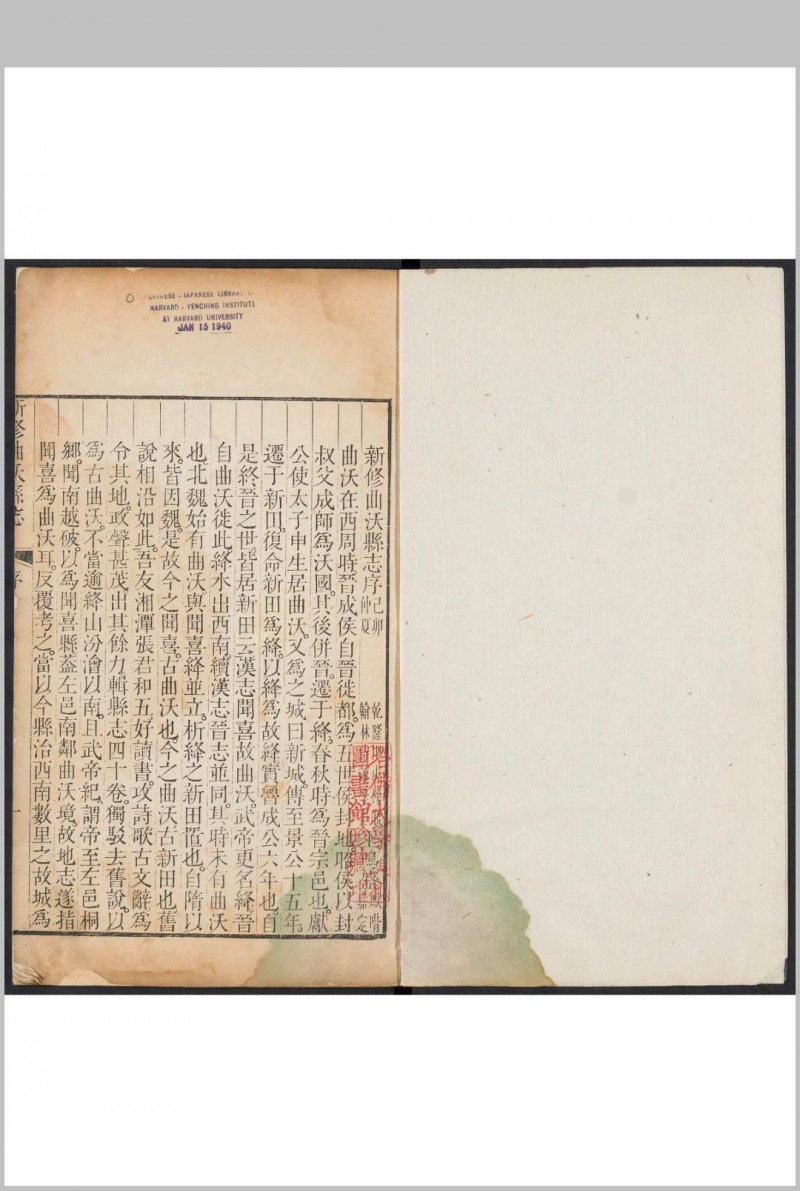 CHINESE - JAPANESE LIBRARY
HARVARD - YENCHING INSTITUTE
AT HARVARD UNIVERSITY
JAN 15 1940
新修曲沃縣志序 己卯仲夏 乾隆 翰林
曲沃在西周時晉成侯自晉徙都。爲五世侯封地。昭侯以封
叔父成師爲沃國。其後併晉。遷于絳。春秋時爲晉宗邑也。獻
公使太子申生居曲沃。又爲之城曰新城。傳至景公十五年。
遷于新田。復命新田爲絳。以絳爲故絳。實魯成公六年也。自
是終晉之世。皆居新田云。漢志聞喜故曲沃。武帝更名。絳晉
自曲沃徙此。絳水出西南。續漢志晉志並同。其時未有曲沃
也。北魏始有曲沃與聞喜絳並立。析絳之新田置也。自隋以
來。皆因魏。是故今之聞喜。古曲沃也。今之曲沃。古新田也。舊
說相沿如此。吾友湘潭張君和五。好讀書。攻詩歌古文辭。爲
令其地。政聲甚茂。出其餘力。輯縣志四十卷。獨駁去舊說。以
爲古曲沃。不當逾絳山汾澮以南。且武帝紀。謂帝至左邑桐
鄉。聞南越破。以爲聞喜縣。蓋左邑南鄰曲沃境。故地志遂指
聞喜爲曲沃耳。反覆考之。當以今縣治西南數里之故城爲
新修曲沃縣志 序 一
圖書館